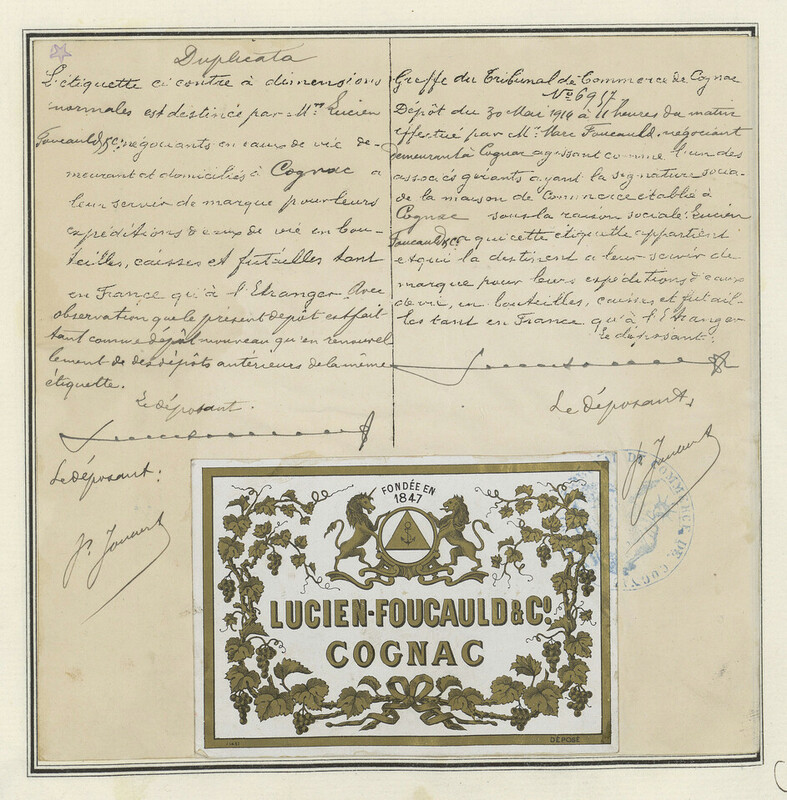 Duplicata
L'étiquette ci contre à dimensions
normales est destinée par Mrs Lucien
Foucauld & Cie négociants en eaux de vie de-
meurant et domiciliés à Cognac a
leur servir de marque pour leurs
expéditions d'eaux de vie en bou-
teilles, caisses et futailles tant
en France qu'à l'Etranger. Avec
observation que le présent dépôt est fait
tant comme dépôt nouveau qu'en renouvel
lement de des dépôts antérieurs de la même
étiquette.
Le déposant.
Le déposant:
Greffe du Tribunal de Commerce de Cognac
No 6957
Dépôt du 30 Mai 1914 à 11 heures du matin
effectué par Mr Marc Foucauld, négociant
demeurant à Cognac agissant comme l'un des
associés gérants ayant la signature socia-
de la maison de Commerce établie à
Cognac sous la raison sociale: Lucien
Foucauld & Co a qui cette étiquette appartient
et qui la destinent a leur servir de
marque pour leurs expéditions d'eaux
de vie, en bouteilles, caisses et futail-
les tant en France qu'à l'Etranger
Le déposant.
Le déposant,
FONDÉE EN
1847
LUCIEN-FOUCAULD & Co.
COGNAC
DÉPOSÉ
DE COMMERCE DE COGN